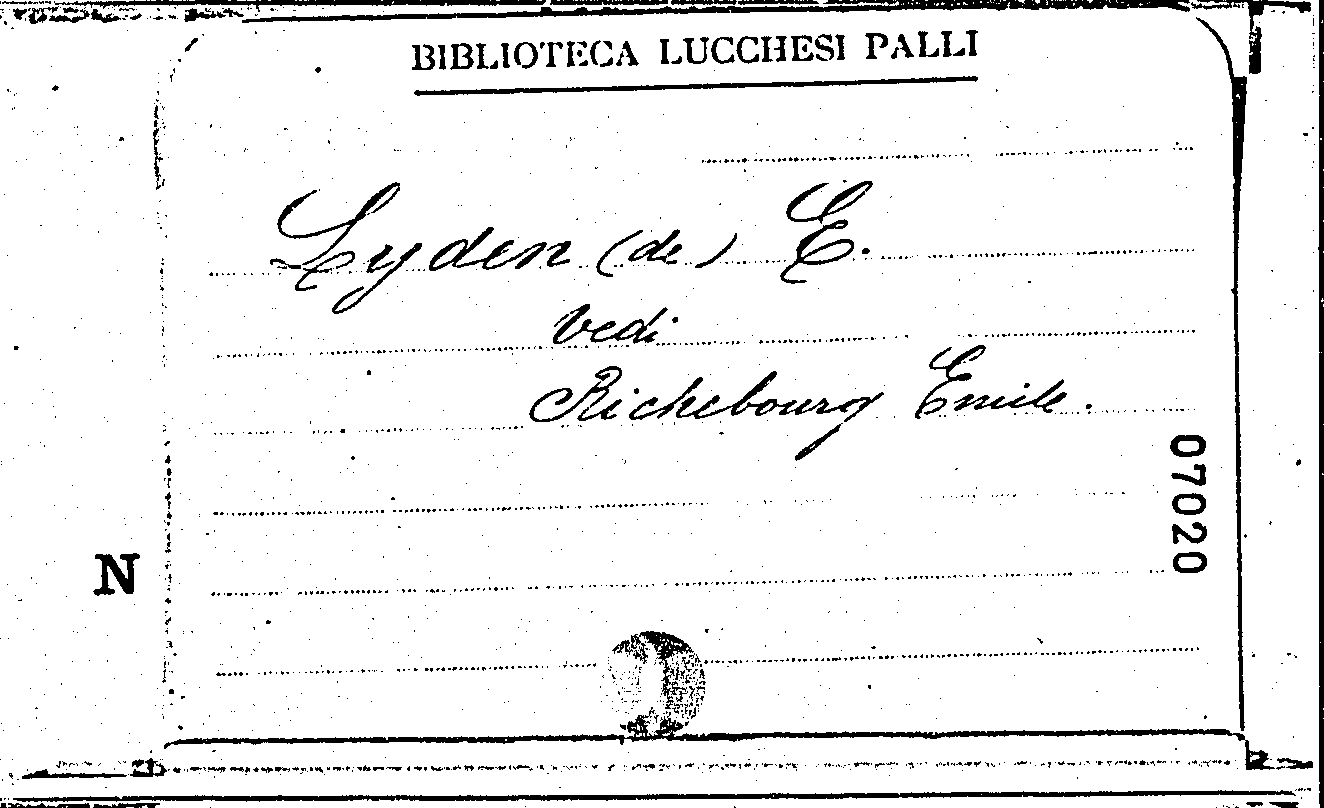 BIBLIOTECA LUCCHESI PALLI
Lyden (de) E.
Vedi
Richebourg Emile.
07020
N